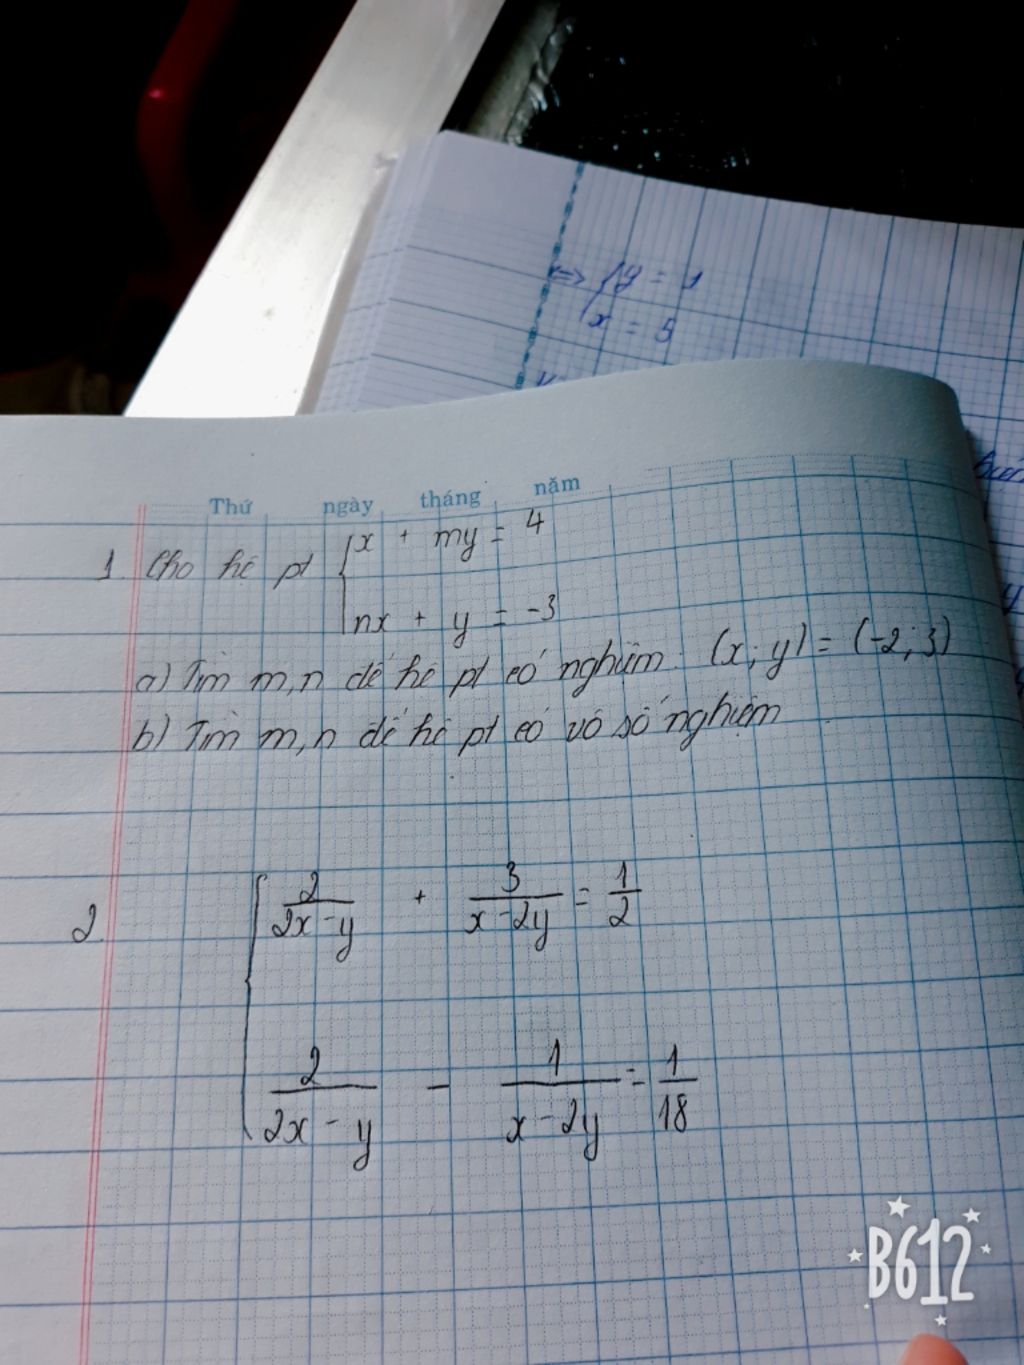 <=> { y = 1
x = 5
Thứ ngày tháng năm
1. Cho hệ pt { x + my = 4
nx + y = -3
a) Tìm m,n để hệ pt có nghiệm: (x; y) = (-2; 3)
b) Tìm m,n để hệ pt có vô số nghiệm
2. { 2/(2x - y) + 3/(x - 2y) = 1/2
2/(2x - y) - 1/(x - 2y) = 1/18
B612